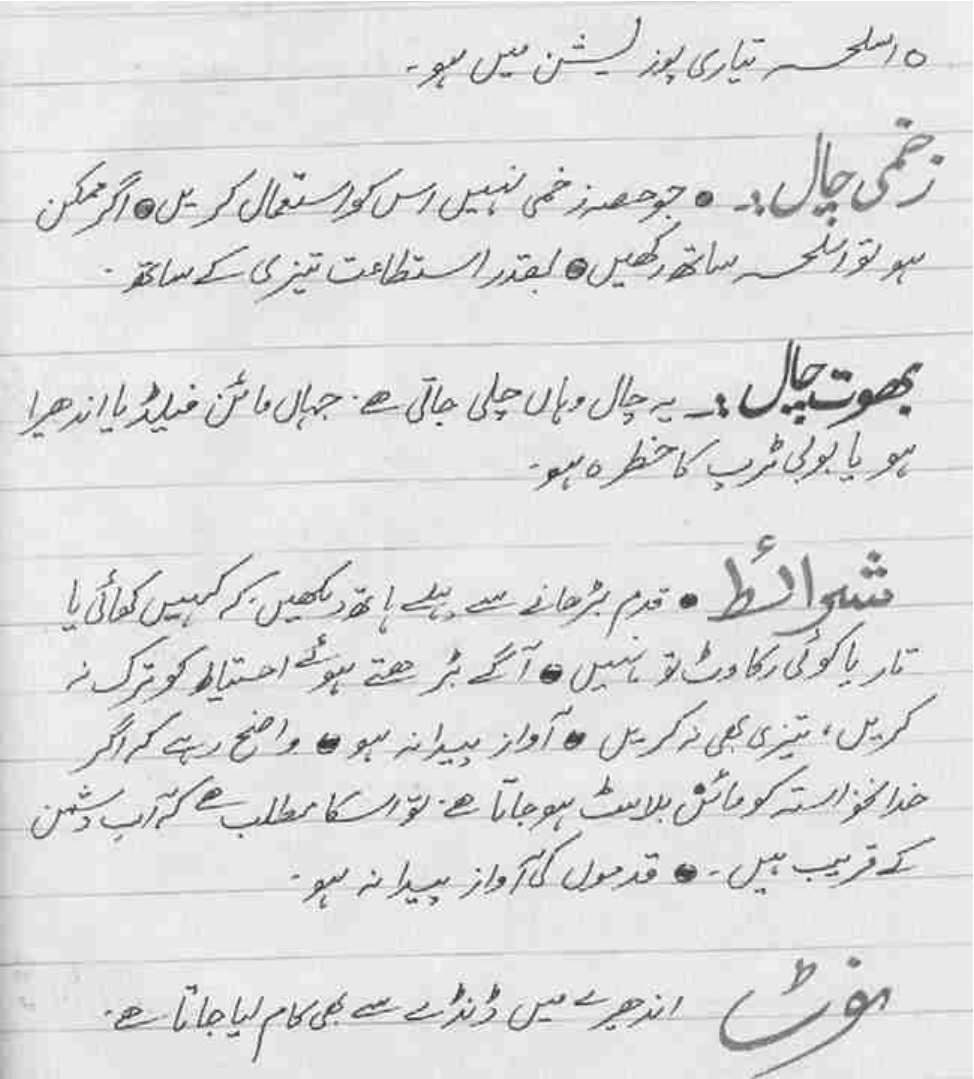 ○ اسلحہ تیاری پوزیشن میں ہو۔
زخمی چال :۔ ● جو حصہ زخمی نہیں اس کو استعمال کریں ● اگر ممکن
ہو تو اسلحہ ساتھ رکھیں ● بقدر استطاعت تیزی کے ساتھ ۔
بھوت چال :۔ یہ چال وہاں چلی جاتی ہے ۔ جہاں مائن فیلڈ یا اندھیرا
ہو یا بوبی ٹرپ کا خطرہ ہو ۔
شرائط ● قدم بڑھانے سے پہلے ہاتھ رکھیں، کہ کہیں کھائی یا
تار یا کوئی رکاوٹ تو نہیں ● آگے بڑھتے ہوئے احتیاط کو ترک نہ
کریں، تیزی بھی نہ کریں ● آواز پیدا نہ ہو ● واضح رہے کہ اگر
خدانخواستہ کو مائن بلاسٹ ہو جاتا ہے ۔ تو اسکا مطلب ہے کہ آپ دشمن
کے قریب ہیں ۔ ● قدموں کی آواز پیدا نہ ہو ۔
نوٹ اندھیرے میں ڈنڈے سے بھی کام لیا جاتا ہے ۔